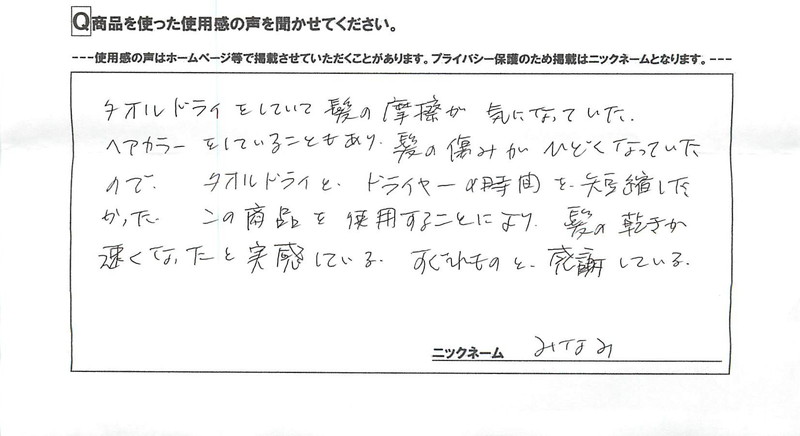 Q商品を使った使用感の声を聞かせてください。
---使用感の声はホームページ等で掲載させていただくことがあります。プライバシー保護のため掲載はニックネームとなります。---
タオルドライをしていて髪の摩擦が 気になっていた.
ヘアカラーをしていることもあり、髪の傷みがひどくなっていた
ので、 タオルドライと、ドライヤーの時間を、短縮した
かった. この商品を使用することにより、髪の乾きが
速くなったと実感している. すぐれものと、感謝している.
ニックネーム みなみ